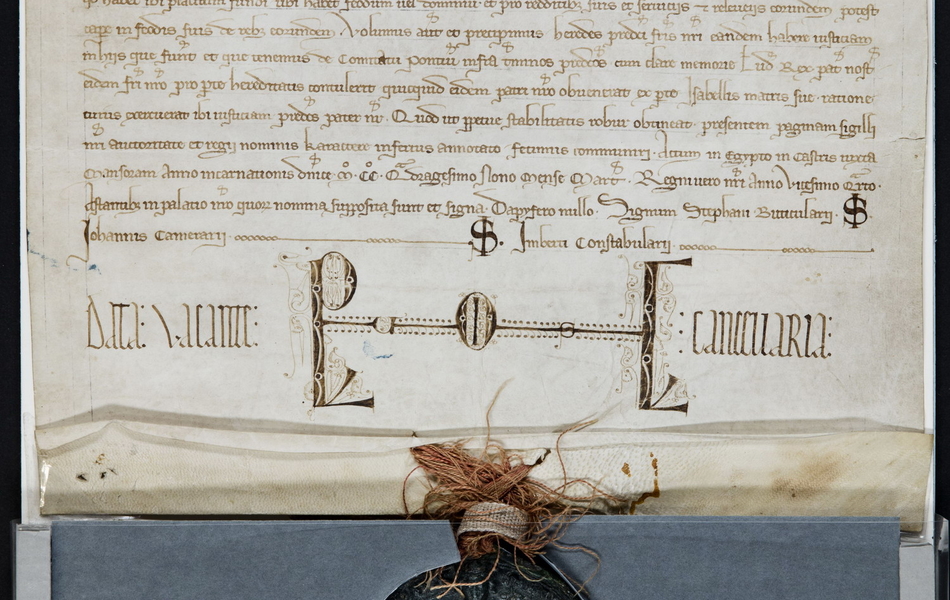 habet ibi placitum fundi ubi habet feodum vel dominiu et pro redditibz suis et serviciis et releveiis eorundem potest
cape in feodis suis de rebz eorundem. Volumus aut et precipimus heredes predci fris nri eandem habere iusticiam
in hiis que sunt et que tenemus de Comitatu Pontivi infra tminos predcos cum clare memorie Lud Rex pat nost
eidem fri nro pro pte hereditatis contulerit quicquid eidem patri nro obvenerat ex pte Isabellis matris sue ratione
exercuerat ibi iusticiam predcs pater nr. Quod ut ppetue stabilitatis robur obtineat presentem paginam sigilli
nri auctoritate et regii nominis karactere inferius annotato fecimus communiri. Actum in Egypto in Castris iuxta
Mansoram Anno incarnationis dnice Mo. CCo. Qadragesimo Nono Mense Marc. Regni vero nri Anno Vicesimo Qrto.
Astantibz in palatio nro quor nomina supposita sunt et signa. Dapyfero nullo. Signum Stephani Buticularii. S.
Johannis Camerarii. S. Imberti Constabularii.
DATA: VACANTE: CANCELLARIA: